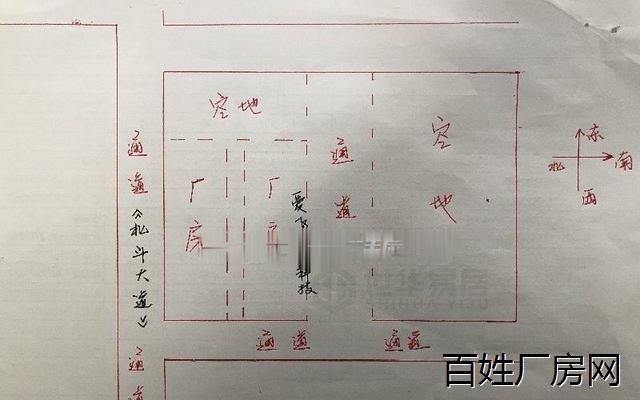 空地
厂房
厂
爱飞
科技
通道
空地
通道
《北斗大道》
通道
通道
通道
东
南
西
北
百姓厂房网